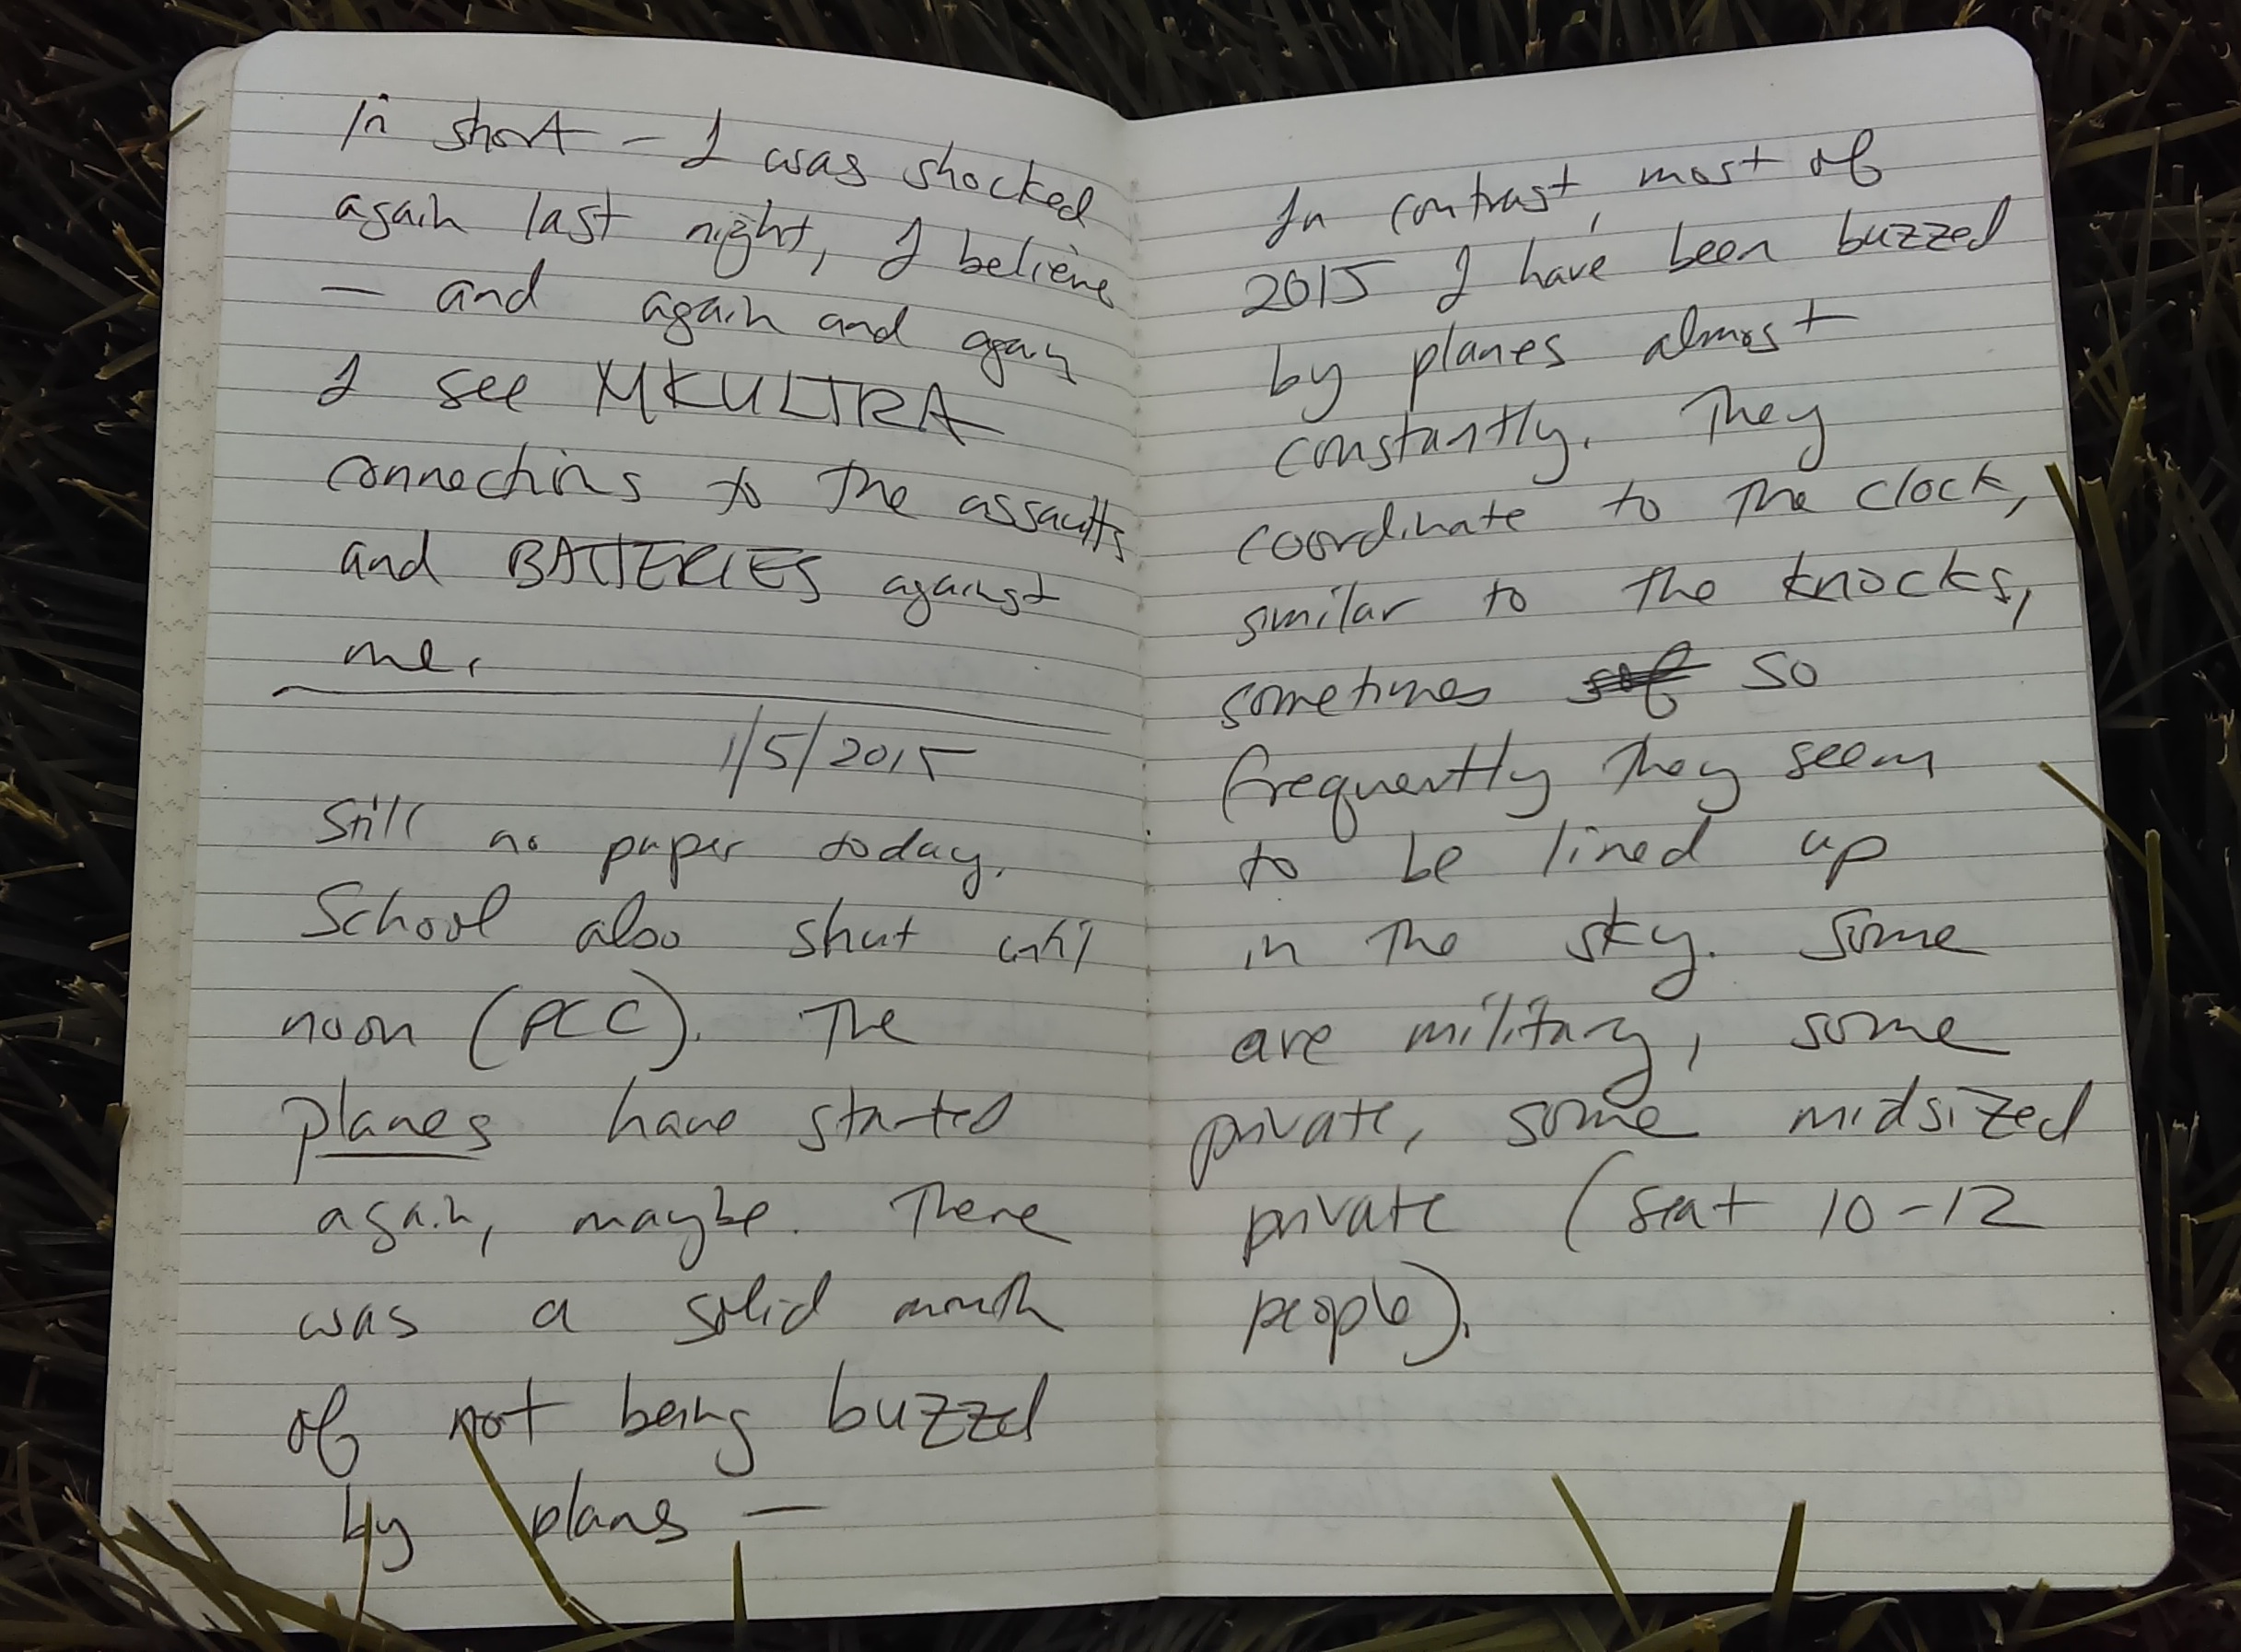 In short – I was shocked
again last night, I believe
– and again and again
I see MKULTRA
connections to the assaults
and BATTERIES against
me.
1/5/2015
Still no paper today.
School also shut until
noon (PCC). The
planes have started
again, maybe. There
was a solid month
of not being buzzed
by planes –
In contrast, most of
2015 I have been buzzed
by planes almost
constantly. They
coordinate to the clock,
similar to the knocks,
sometimes so
frequently they seem
to be lined up
in the sky. Some
are military, some
private, some midsized
private (seat 10-12
people).